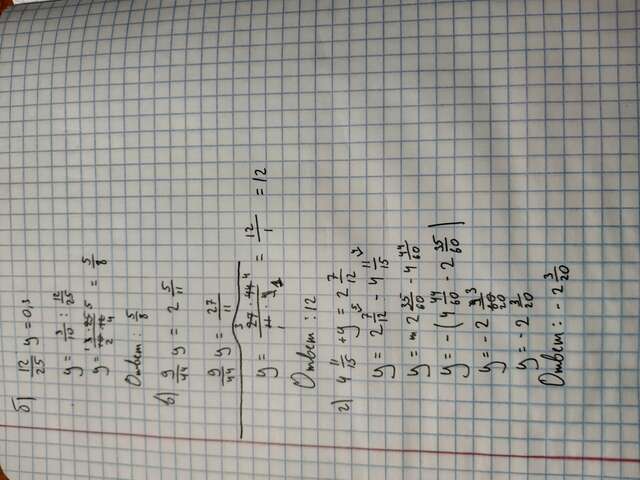 б) 12/25 y = 0,3
y = 3/10 : 12/25
y = 3 · 25 5/10 · 12 2 4 = 5/8
Ответ: 5/8
в) 9/44 y = 2 5/11
9/44 y = 27/11
y = 3 27 · 44 4/11 · 9 1 1 = 12/1 = 12
Ответ: 12
г) 4 11/15 + y = 2 7/12
y = 2 7/12 - 4 11/15
y = 2 35/60 - 4 44/60
y = -(4 44/60 - 2 35/60)
y = -2 3/20
y = -2 3/20
Ответ: -2 3/20